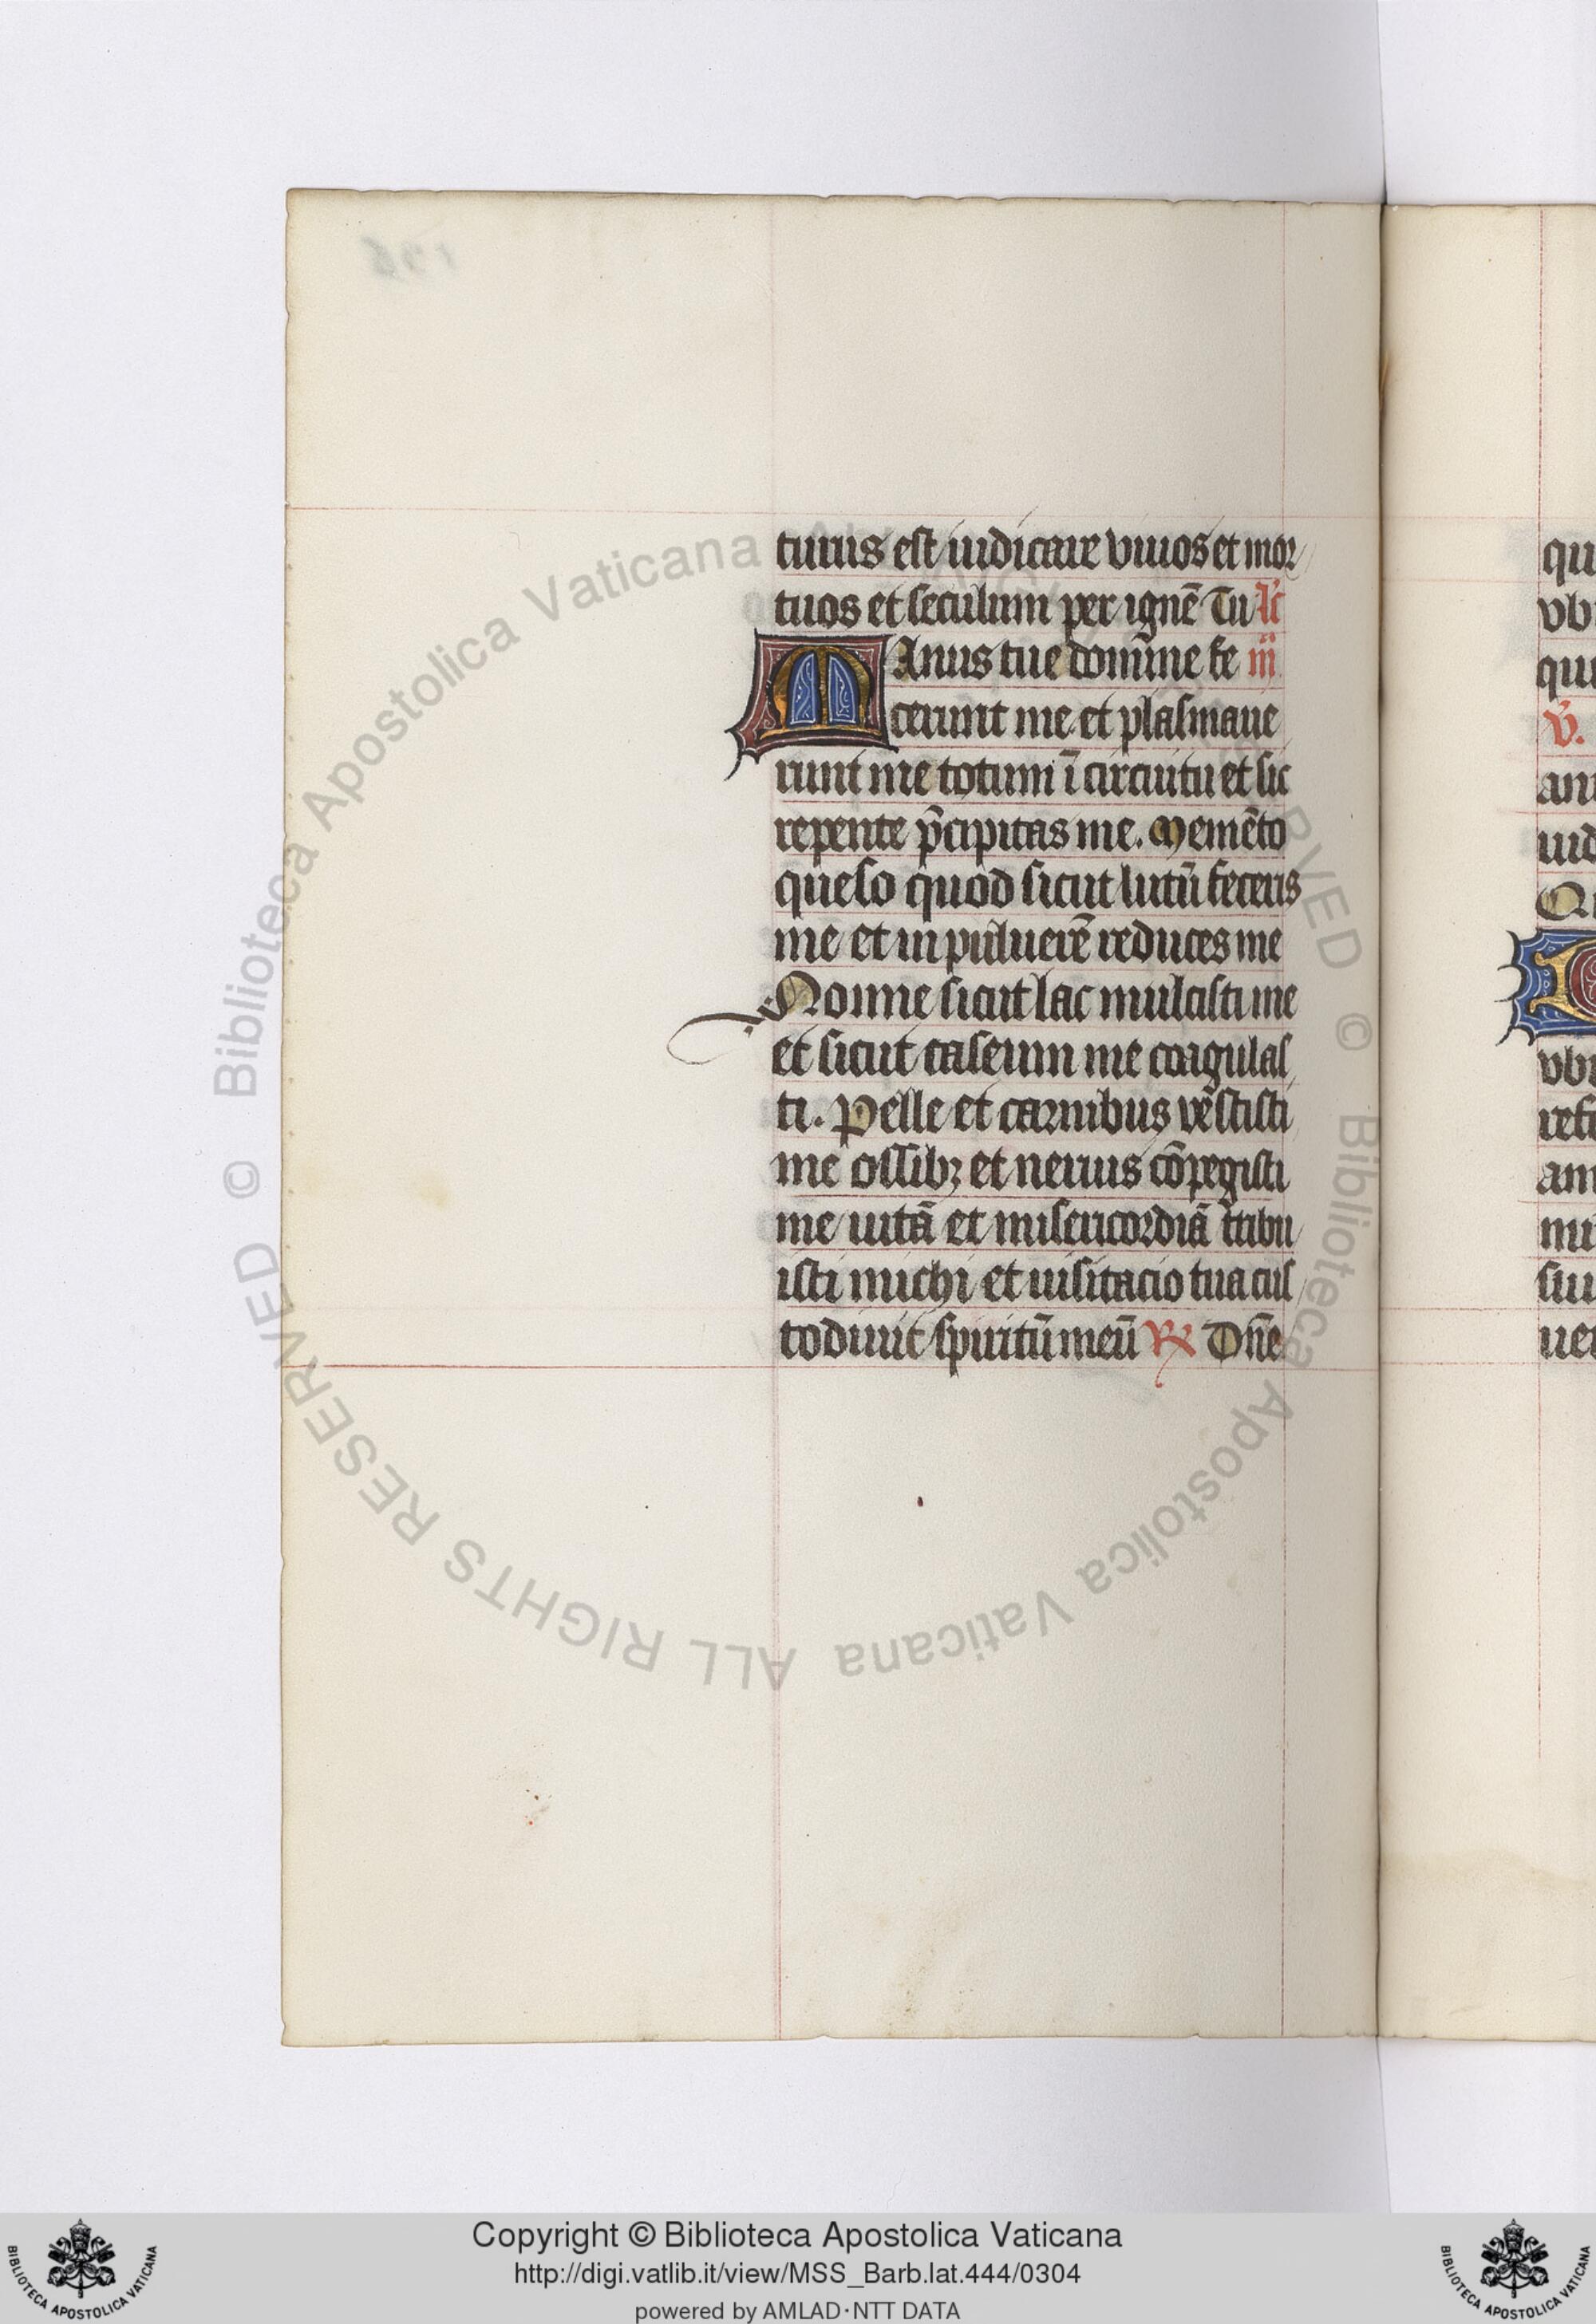 turus est iudicare viuos et mor
tuos et seculum per ignē Tu lc̄
Manus tue domine fe iii
cerunt me et plasmaue
runt me totum ī circuitu et sic
repente p̄cipitas me. Memēto
queso quod sicut lutū feceris
me et in puluerē reduces me
Nonne sicut lac mulcisti me
et sicut caseum me coagulas
ti. Pelle et carnibus vestisti
me ossibꝫ et neruis cōpegisti
me uitā et misericordiā t̄tibu
isti michi et uisitacio tua cus
todiuit spiritū meū ℟ Dn̄e
qu
vb
qui
v̄.
ani
iud
Qu
vbi
refr
am
mi
siu
uer
© Biblioteca Apostolica Vaticana
ALL RIGHTS RESERVED
© Biblioteca Apostolica Vaticana
Copyright © Biblioteca Apostolica Vaticana
http://digi.vatlib.it/view/MSS_Barb.lat.444/0304
powered by AMLAD·NTT DATA
BIBLIOTECA APOSTOLICA VATICANA
BIBLIOTECA APOSTOLICA VATICANA